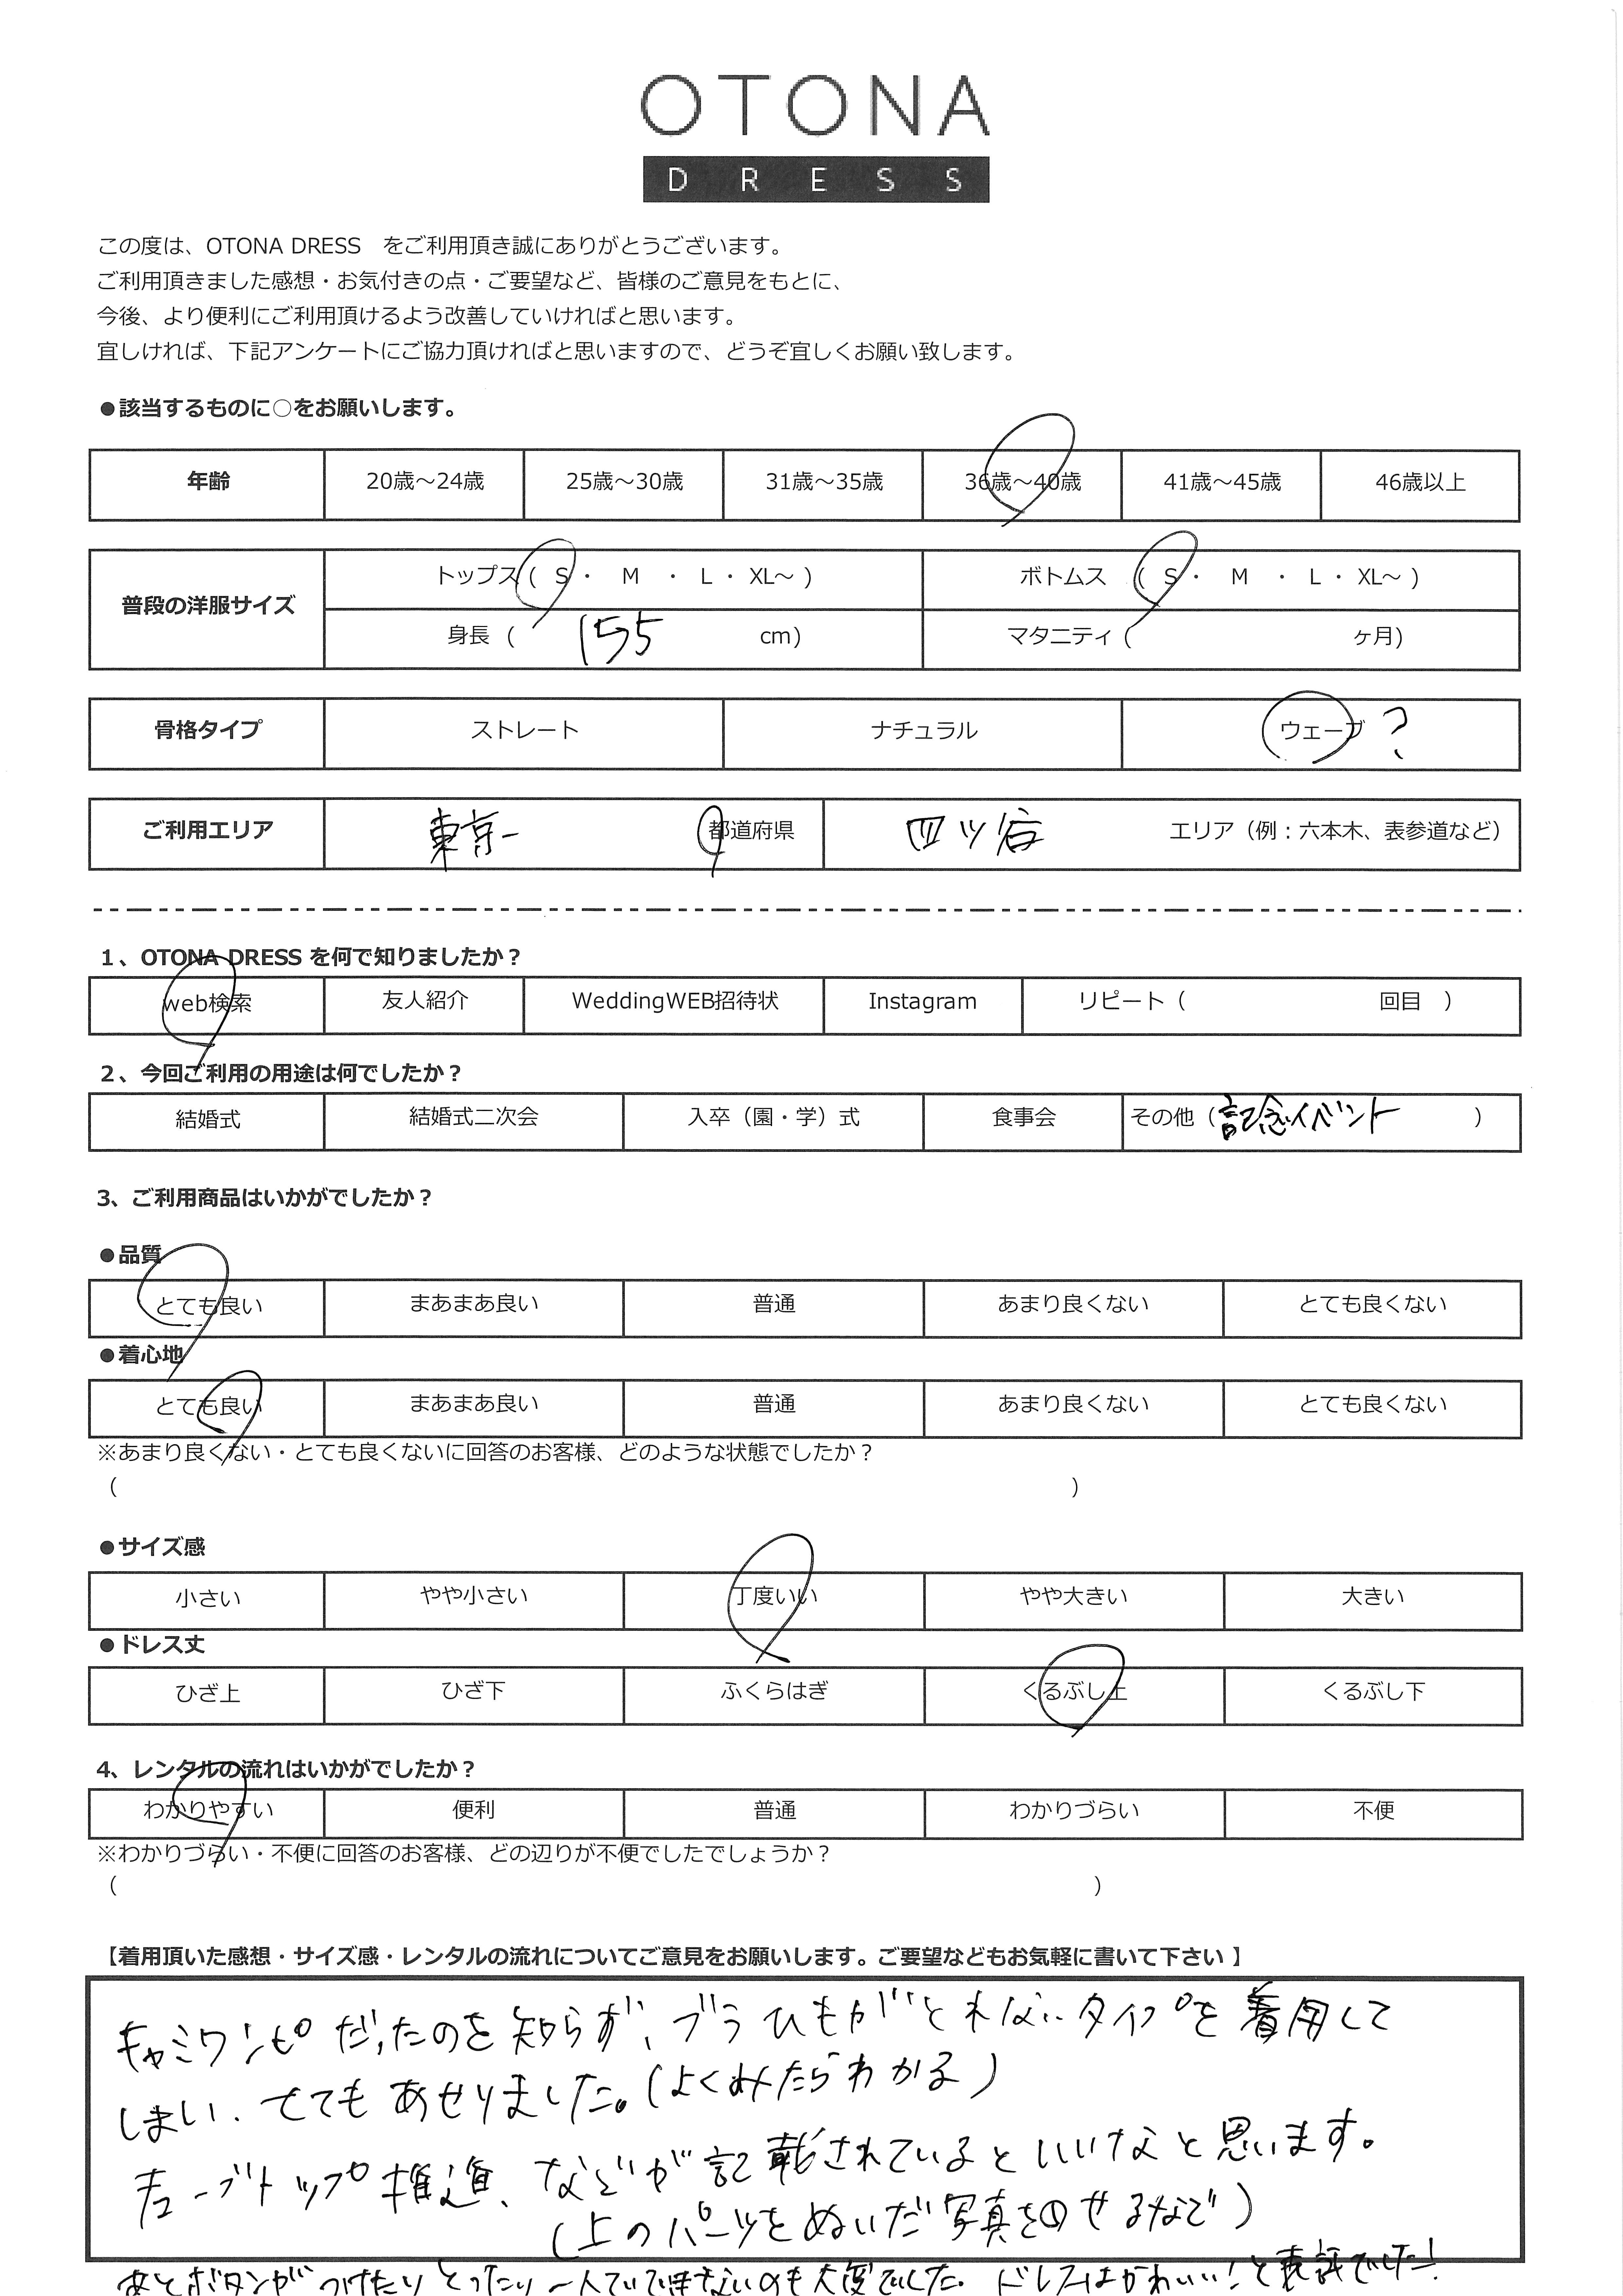 OTONA
DRESS
この度は、OTONA DRESS をご利用頂き誠にありがとうございます。
ご利用頂きました感想・お気付きの点・ご要望など、皆様のご意見をもとに、
今後、より便利にご利用頂けるよう改善していければと思います。
宜しければ、下記アンケートにご協力頂ければと思いますので、どうぞ宜しくお願い致します。
●該当するものに○をお願いします。
年齢 20歳～24歳 25歳～30歳 31歳～35歳 36歳～40歳 41歳～45歳 46歳以上
普段の洋服サイズ
トップス( S ・ M ・ L ・ XL～ ) ボトムス ( S ・ M ・ L ・ XL～ )
身長 ( 155 cm) マタニティ ( ヶ月)
骨格タイプ ストレート ナチュラル ウェーブ ?
ご利用エリア 東京 都道府県 四ツ谷 エリア（例：六本木、表参道など）
1、OTONA DRESS を何で知りましたか？
web検索 友人紹介 WeddingWEB招待状 Instagram リピート（ 回目 ）
2、今回ご利用の用途は何でしたか？
結婚式 結婚式二次会 入卒（園・学）式 食事会 その他（ 記念イベント ）
3、ご利用商品はいかがでしたか？
●品質
とても良い まあまあ良い 普通 あまり良くない とても良くない
●着心地
とても良い まあまあ良い 普通 あまり良くない とても良くない
※あまり良くない・とても良くないに回答のお客様、どのような状態でしたか？
( )
●サイズ感
小さい やや小さい 丁度いい やや大きい 大きい
●ドレス丈
ひざ上 ひざ下 ふくらはぎ くるぶし上 くるぶし下
4、レンタルの流れはいかがでしたか？
わかりやすい 便利 普通 わかりづらい 不便
※わかりづらい・不便に回答のお客様、どの辺りが不便でしたでしょうか？
( )
【着用頂いた感想・サイズ感・レンタルの流れについてご意見をお願いします。ご要望などもお気軽に書いて下さい 】
キャミワンピだったのを知らず、ブラひもがとれないタイプを着用して
しまい、とてもあせりました。(よくみたらわかる)
チューブトップ推進、などが記載されているといいなと思います。
(上のパーツをぬいだ写真をのせるなど)
あとボタンがつけたりとったり一人でできないのも大変でした。ドレスはかわいい！と でした！